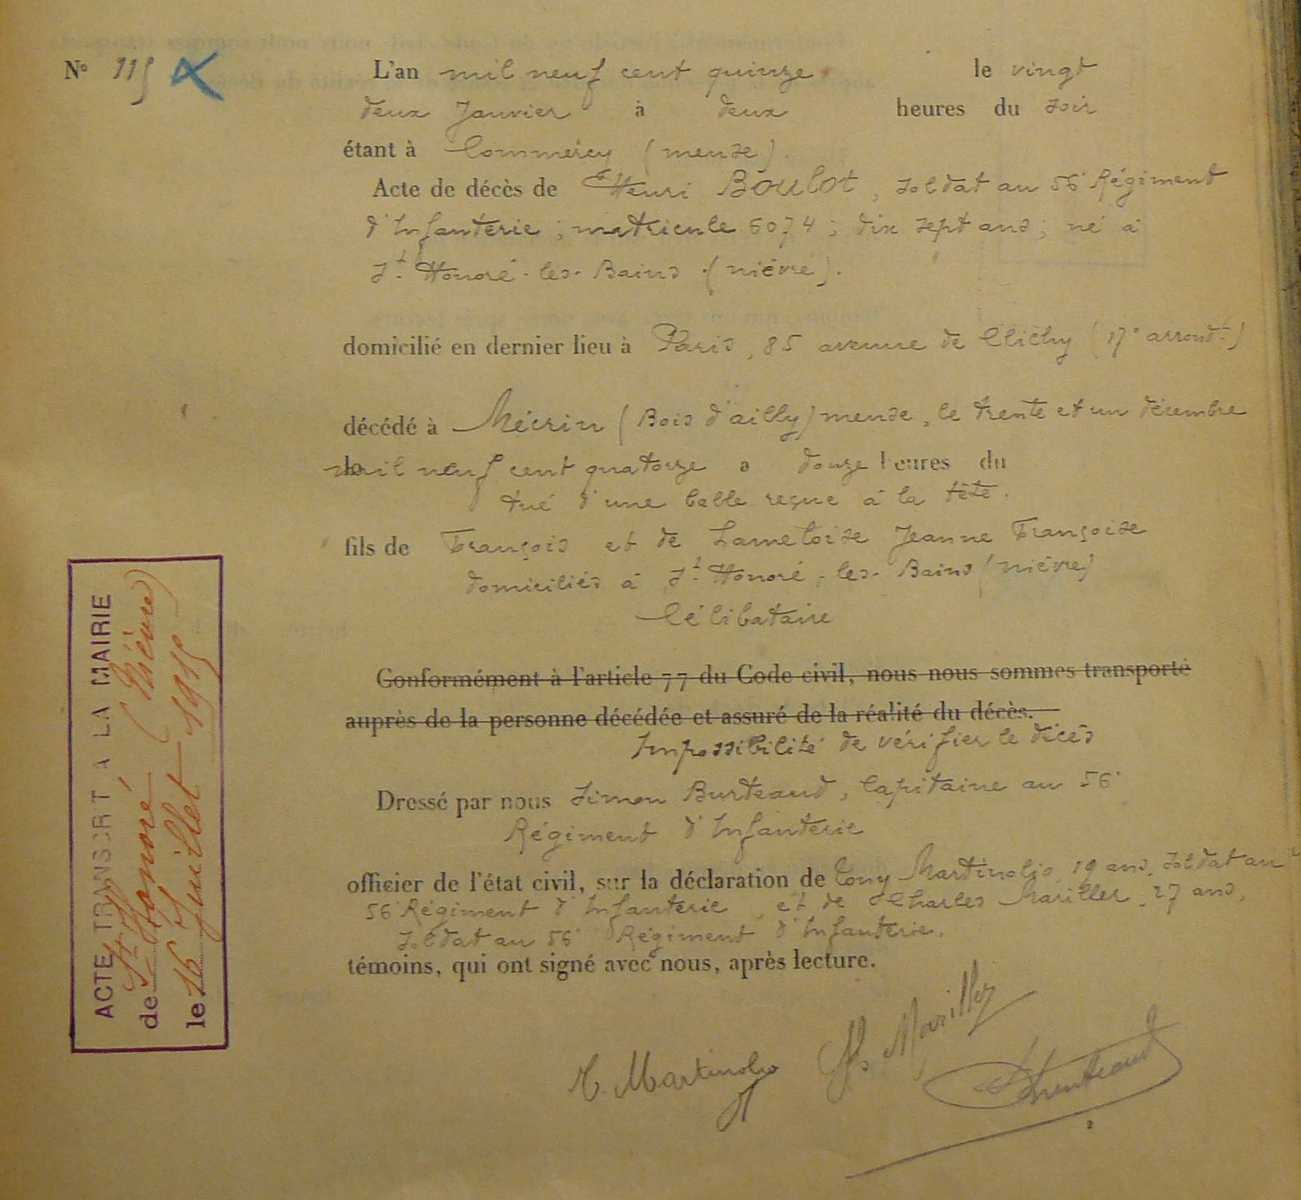 N° 115
L'an mil neuf cent quinze le vingt
deux Janvier à deux heures du soir
étant à Commercy (meuse).
Acte de décès de Henri Boulot, soldat au 56e Régiment
d'Infanterie ; matricule 6074 ; dix sept ans ; né à
St Honoré-les-Bains (nièvre).
domicilié en dernier lieu à Paris, 85 avenue de Clichy (17e arrondt)
décédé à Mécrin (Bois d'ailly) meuse, le trente et un décembre
mil neuf cent quatorze a douze heures du
tué d'une balle reçue à la tête.
fils de François et de Lameloise Jeanne Françoise
domiciliés à St Honoré-les-Bains (nièvre)
Célibataire
Conformément à l'article 77 du Code civil, nous nous sommes transporté
auprès de la personne décédée et assuré de la réalité du décès.
Impossibilité de vérifier le décès
Dressé par nous Simon Burteaud, Capitaine au 56e
Régiment d'Infanterie
officier de l'état civil, sur la déclaration de Tony Martinoljo, 19 ans, soldat au
56e Régiment d'Infanterie, et de Charles Mariller, 27 ans,
soldat au 56e Régiment d'Infanterie.
témoins, qui ont signé avec nous, après lecture.
T. Martinoljo Ch. Mariller
2
ACTE TRANSCRIT A LA MAIRIE
de St Honoré (Nièvre)
le 16 Juillet 1915